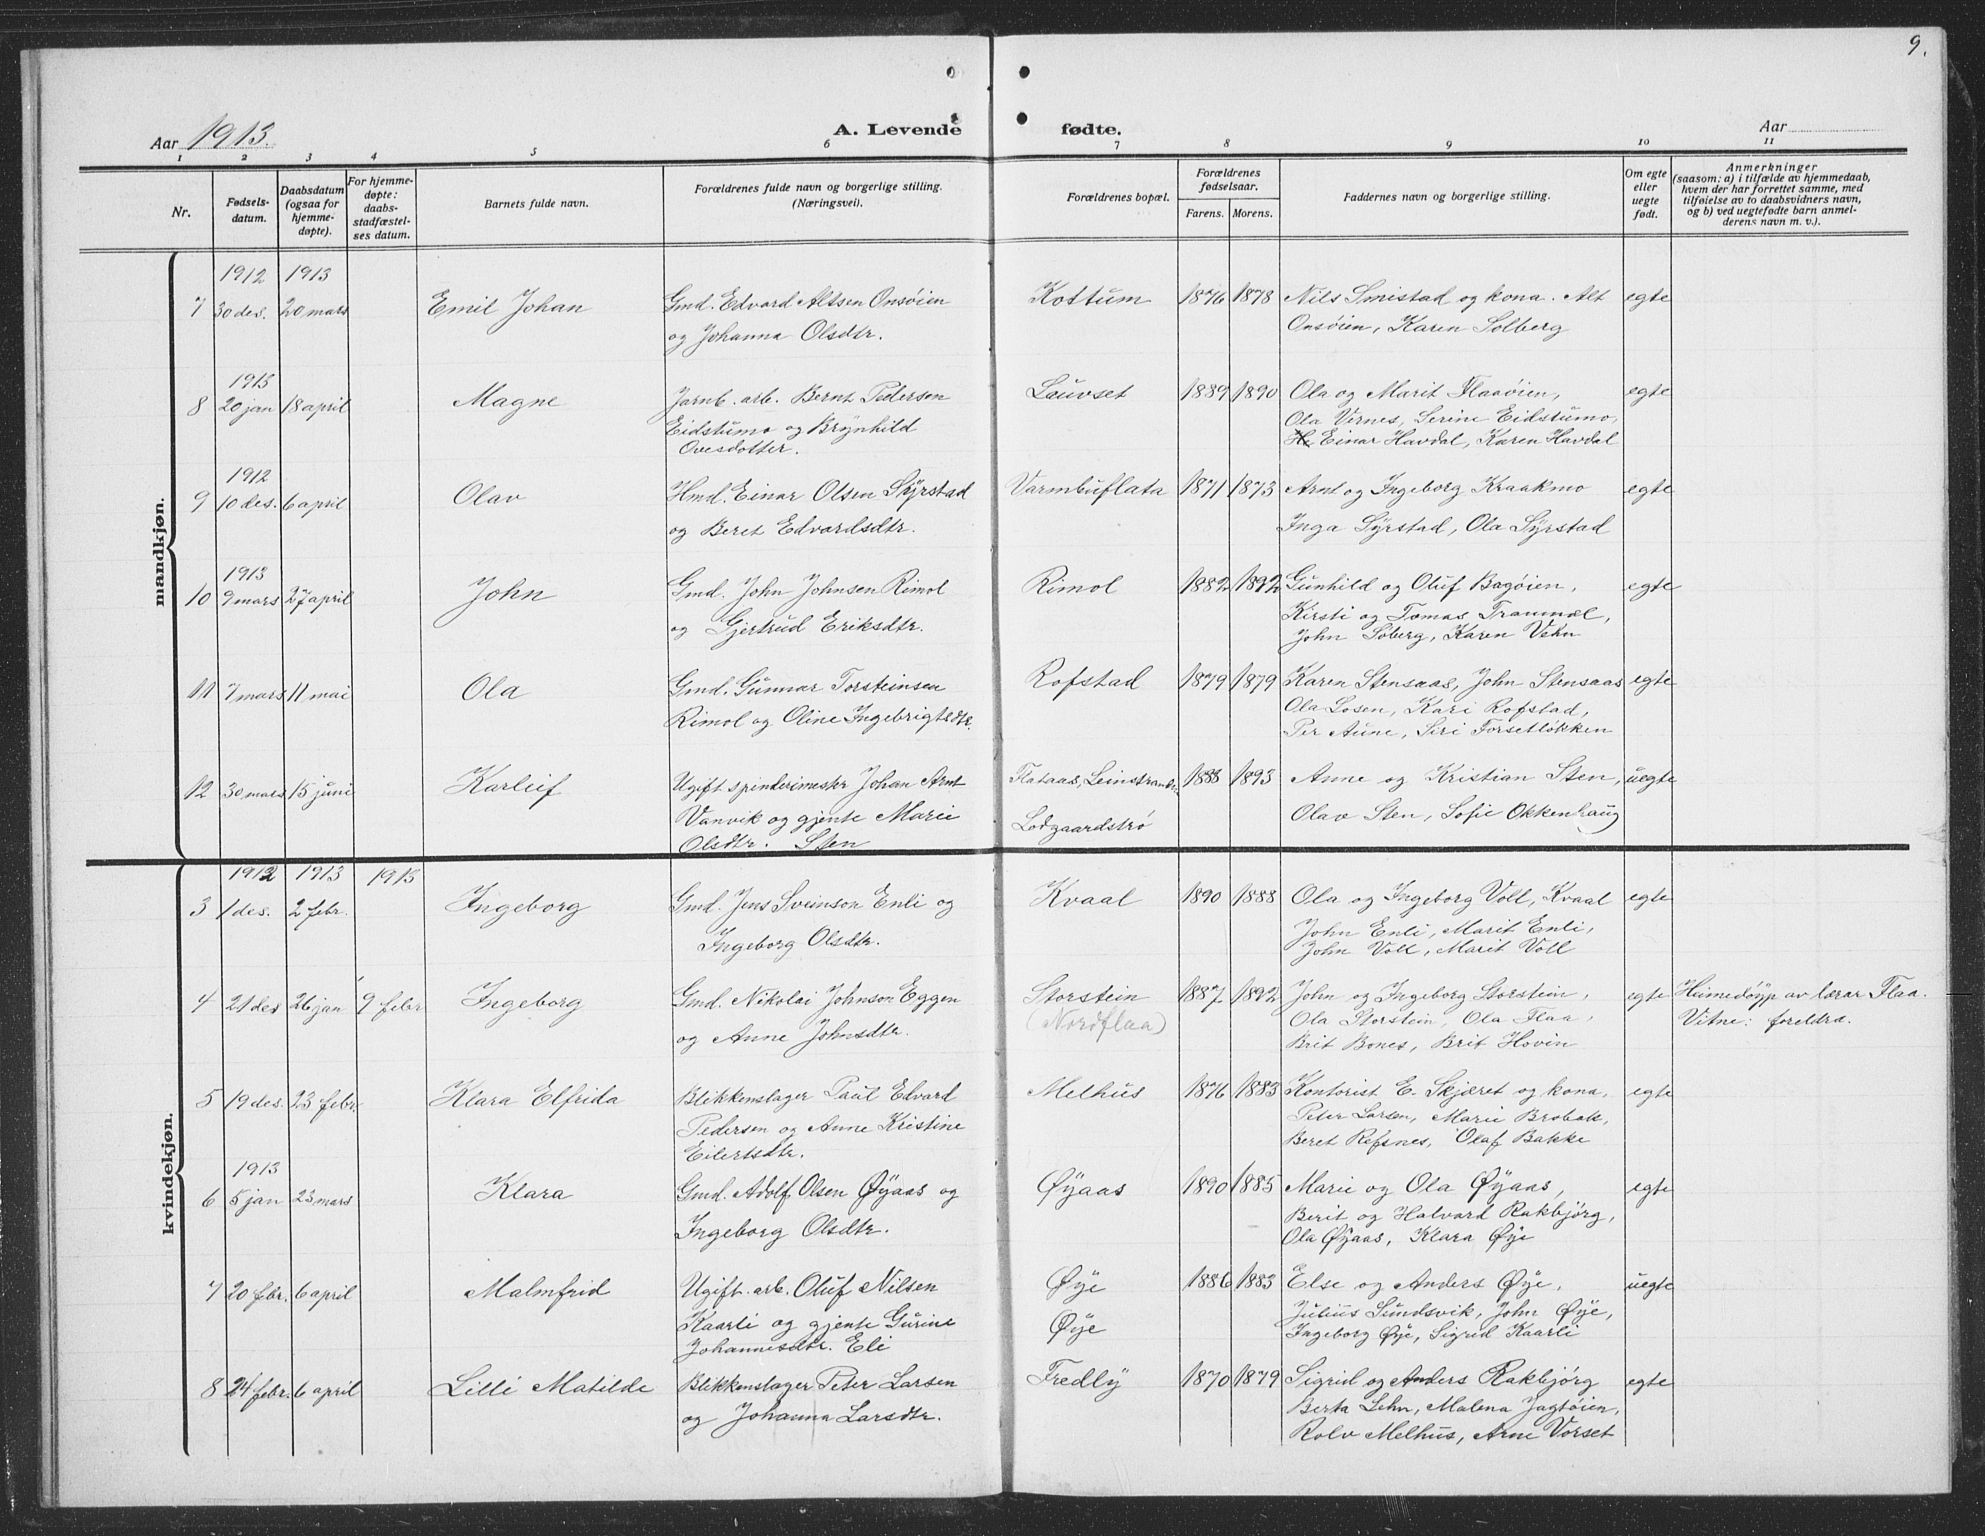 9.
Aar 1913.
A. Levende fødte.
Aar
1 2 3 4 5 6 7 8 9 10 11
Nr.
Fødsels-
datum.
Daabsdatum
(ogsaa for
hjemme-
døpte).
For hjemme-
døpte:
daabs-
stadfæstel-
ses datum.
Barnets fulde navn.
Forældrenes fulde navn og borgerlige stilling.
(Næringsvei).
Forældrenes bopæl.
Forældrenes
fødselsaar.
Farens. Morens.
Faddernes navn og borgerlige stilling.
Om egte
eller
uegte
født.
Anmerkninger
(saasom: a) i tilfælde av hjemmedaab,
hvem der har forrettet samme, med
tilføielse av to daabsvidners navn,
og b) ved uegtefødte barn anmel-
derens navn m. v.).
mandkjøn.
1912 1913
7 30 des. 20 mars Emil Johan Gmd. Edvard Altsen Onsøien Kottum 1876 1878 Nils Smistad og kona. Alt egte
og Johanna Olsdtr. Onsøien, Karen Solberg
1913
8 20 jan 18 april Magne Jarnb. arb. Bernt Pedersen Lauvset 1889 1890 Ola og Marit Flaaøien, egte
Eidstumo og Brynhild Ola Vernes, Serine Eidstumo,
Ovesdotter. Einar Havdal, Karen Havdal
1912
9 10 des. 6 april Olav Hmd. Einar Olsen Syrstad Varmbuflata 1871 1873 Arnt og Ingeborg Kraakmo egte
og Beret Edvardsdtr. Inga Syrstad, Ola Syrstad
1913
10 9 mars 27 april John Gmd. John Johnsen Rimol Rimol 1882 1892 Gunhild og Oluf Bagøien, egte
og Gjertrud Eriksdtr. Kirsti og Tomas Tranmæl,
John Søberg, Karen Vehn
11 7 mars 11 mai Ola Gmd. Gunnar Torsteinsen Rofstad 1879 1879 Karen Stensaas, John Stensaas egte
Rimol og Oline Ingebrigtsdtr. Ola Losen, Kari Rofstad,
Per Aune, Siri Forsetløkken
12 30 mars 15 juni Karleif Ugift spinderimester Johan Arnt Flataas, Leinstranden 1888 1893 Anne og Kristian Sten, uegte
Vanvik og gjente Marie Lodgaardstrø Olav Sten, Sofie Okkenhaug
Olsdtr. Sten
kvindekjøn.
1912 1913 1913
3 1 des. 2 febr. Ingeborg Gmd. Jens Sveinson Enli og Kvaal 1890 1888 Ola og Ingeborg Voll, Kvaal egte
Ingeborg Olsdtr. John Enli, Marit Enli,
John Voll, Marit Voll
4 21 des 26 jan 9 febr Ingeborg Gmd. Nikolai Johnson Eggen Storstein 1887 1892 John og Ingeborg Storstein, egte Heimedøyp av lærar Flaa.
og Anne Johnsdtr. (Nordflaa) Ola Storstein, Ola Flaa, Vitne: foreldra.
Brit Bones, Brit Hovin
5 19 des. 23 febr. Klara Elfrida Blikkenslager Paul Edvard Melhus 1876 1883 Kontorist E. Skjæret og kona, egte
Pedersen og Anne Kristine Peter Larsen, Marie Brobak,
Eilertsdtr. Beret Refsnes, Olaf Bakke
1913
6 5 jan 23 mars Klara Gmd. Adolf Olsen Øyaas og Øyaas 1890 1885 Marie og Ola Øyaas, egte
Ingeborg Olsdtr. Berit og Halvard Rakbjørg,
Ola Øyaas, Klara Øye
7 20 febr. 6 april Malmfrid Ugift arb. Oluf Nilsen Øye 1886 1883 Else og Anders Øye, uegte
Kaarli og gjente Gurine Øye Julius Sundsvik, John Øye,
Johannesdtr. Eli Ingeborg Øye, Sigrid Kaarli
8 24 febr. 6 april Lilli Matilde Blikkenslager Peter Larsen Fredly 1870 1879 Sigrid og Anders Rakbjørg egte
og Johanna Larsdtr. Berta Lehn, Malena Jagtøien,
Rolv Melhus, Arne Vorset